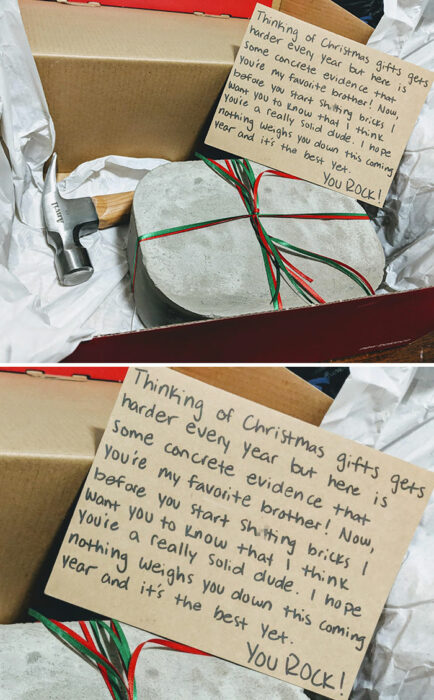 Thinking of Christmas gifts gets
harder every year but here is
some concrete evidence that
you're my favorite brother! Now,
before you start shitting bricks I
want you to know that I think
you're a really solid dude. I hope
nothing weighs you down this coming
year and it's the best yet.
You ROCK!
Thinking of Christmas gifts gets
harder every year but here is
some concrete evidence that
you're my favorite brother! Now,
before you start shitting bricks I
want you to know that I think
you're a really solid dude. I hope
nothing weighs you down this coming
year and it's the best yet.
You ROCK!